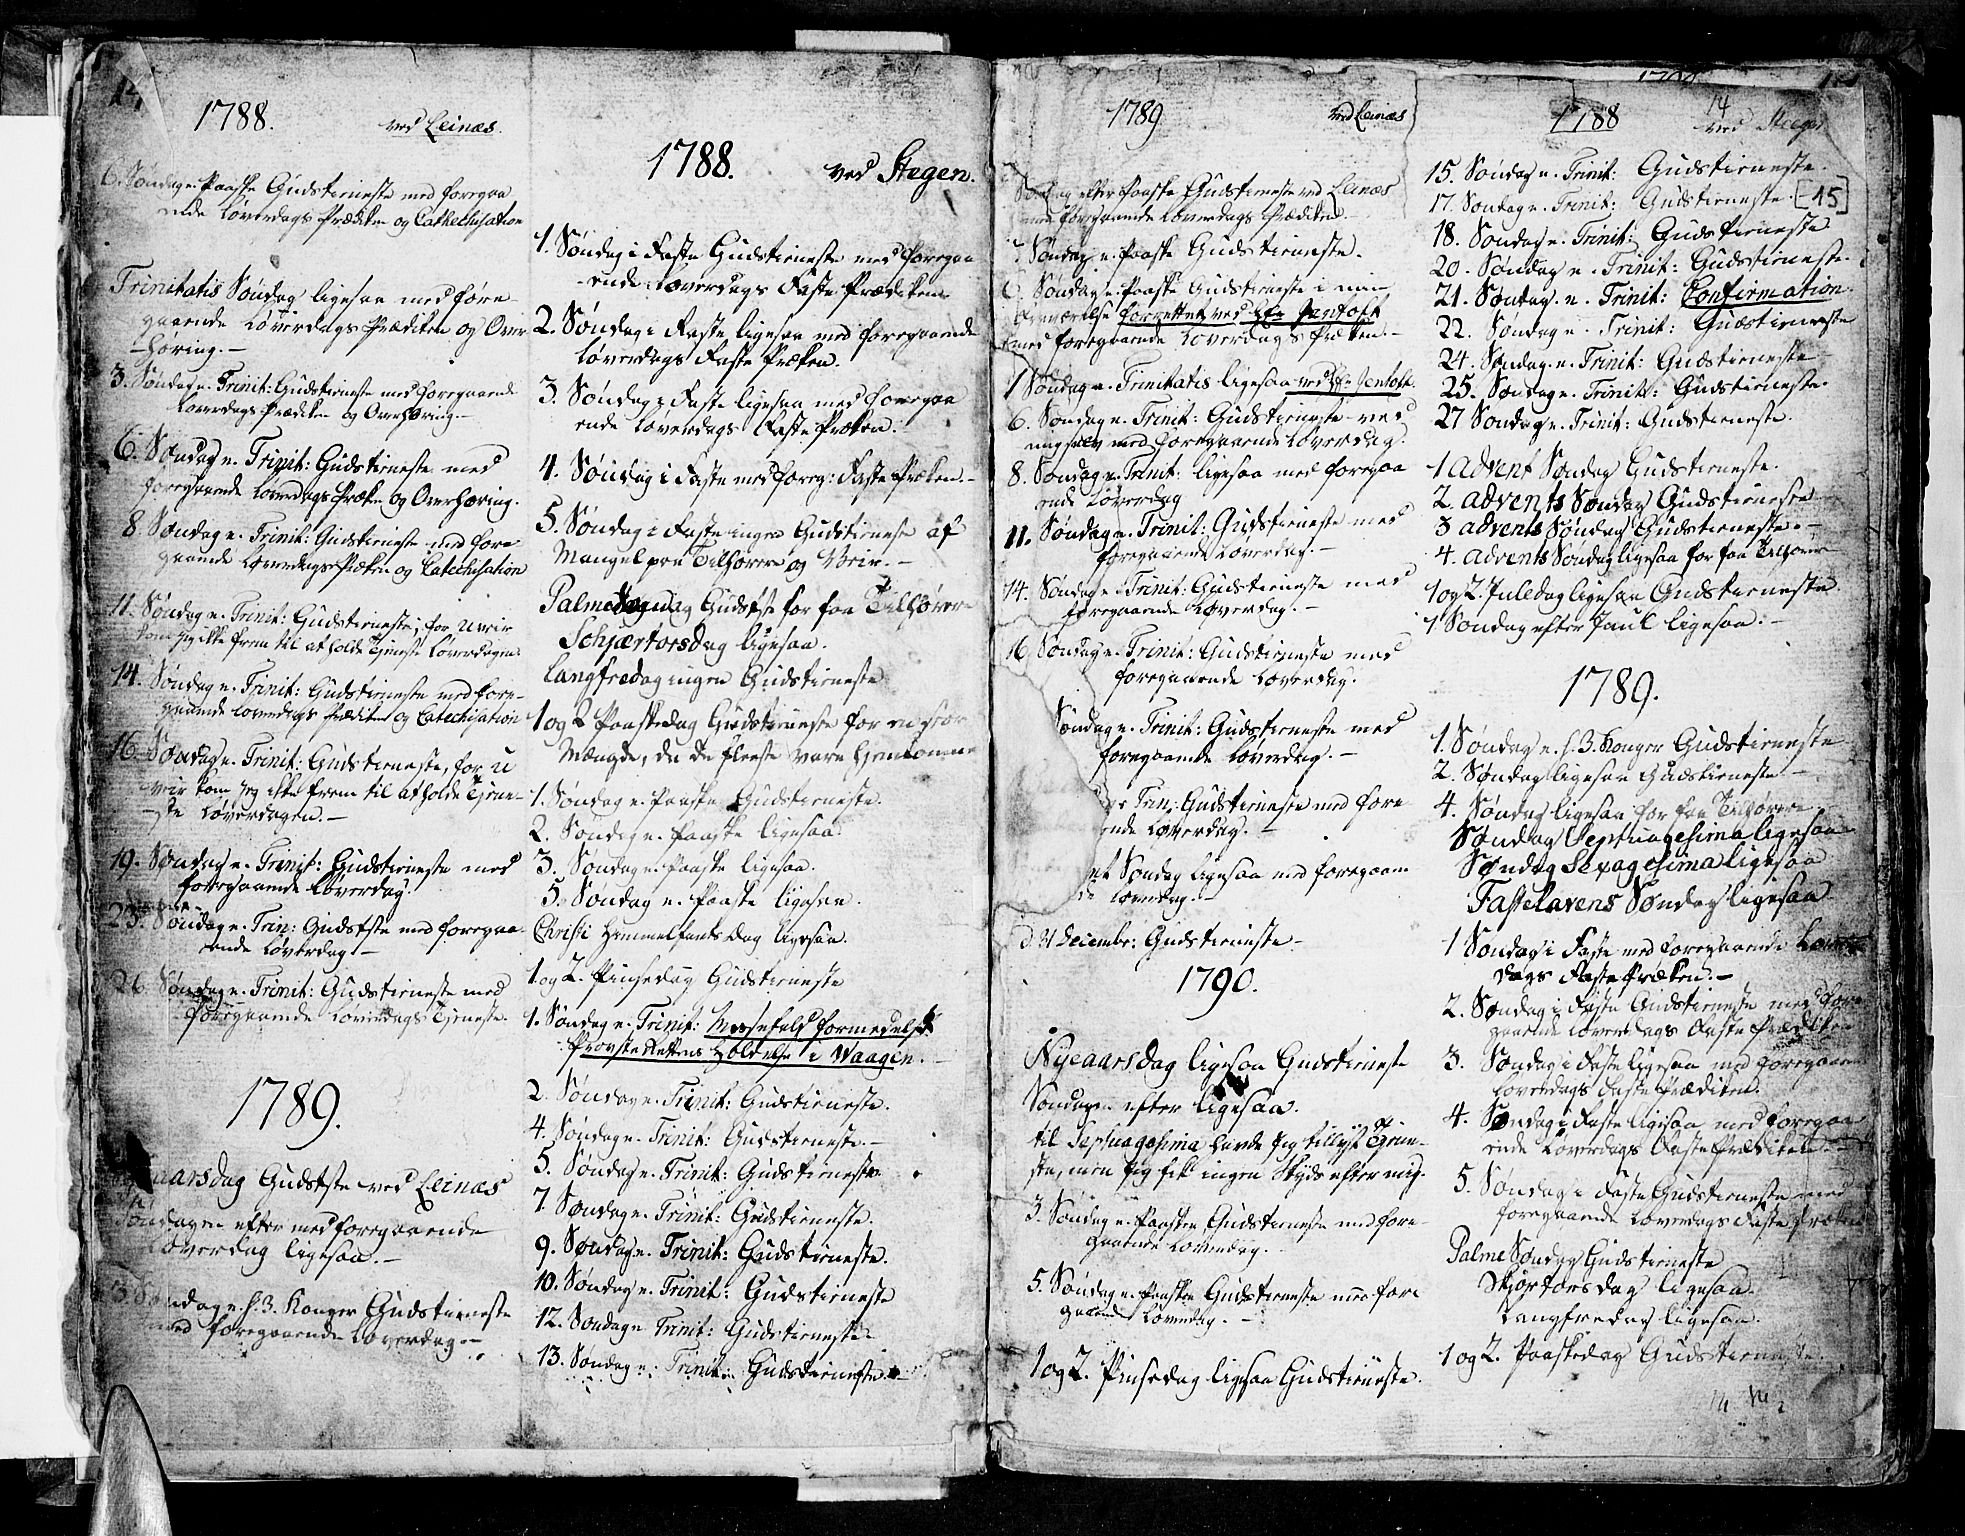 14
1788.
ved Leinæs.
6. Søndag e. Paaske Gudstieneste med foregaa
ende Løverdags Prædiken og Cathechisation
Trinitatis Søndag ligesaa med føre-
gaaende Løverdags Prædiken og Over
-høring.-
3. Søndag e. Trinit: Gudstieneste med foregaaende
Løverdags Prædiken og Overhøring.-
6. Søndag e. Trinit: Gudstieneste med
foregaaende Løverdags Præken og Overhøring.
8. Søndag e. Trinit: Gudstieneste med fore
gaaende Løverdags Præken og Catechisation
11. Søndag e. Trinit: Gudstieneste; for Uveir
kom jeg ikke frem til at holde Tjeneste Løverdagen.
14. Søndag e. Trinit: Gudstieneste med fore-
gaaende Løverdags Prædiken og Catechisation
16. Søndag e. Trinit: Gudstieneste, for U
veir kom jeg ikke frem til at holde Tjene-
-ste Løverdagen.-
19. Søndag e. Trinit: Gudstieneste med
foregaaende Løverdag.
23. Søndag e. Trin: Gudstste med foregaa-
ende Løverdag.-
26. Søndag e. Trinit: Gudstieneste med
foregaaende Løverdags Tjeneste.
1789.
aarsdag Gudstste ved Leinæs
Søndagen efter med foregaaende
Løverdag ligesaa.-
3. Søndag e. h. 3. Konger Gudstieneste
med foregaaende Løverdag.-
1788. ved Stegen.
1. Søndag i Faste Gudstieneste med foregaa
-ende Løverdags Faste Prædiken
2. Søndag i Faste ligesaa med foregaaende
Løverdags Faste Præken.
3. Søndag i Faste ligesaa med foregaa
ende Løverdags Faste Præken.
4. Søndag i Faste med foreg: Faste Præken.-
5. Søndag i Faste ingen Gudstieneste af
Mangel paa Tilhørere og Veir.-
Palmedag Gudstste for faa Tilhørere
Schjærtorsdag ligesaa.
Langfredag ingen Gudstieneste
1 og 2 Paaskedag Gudstieneste for en stor
Mængde, da de fleeste vare hjemkomne
1. Søndag e. Paaske Gudstieneste.
2. Søndag e. Paaske ligesaa
3. Søndag e. Paaske ligesaa.
5. Søndag e. Paaske ligesaa.
Christi Himmelfarts Dag ligesaa.
1. og 2. Pinsedag Gudstieneste
1. Søndag e. Trinit: Messefald formedelst
Provste Rettens Holdelse i Waagen.
2. Søndag e. Trinit: Gudstieneste.
4. Søndag e. Trinit: Gudstieneste.-
5. Søndag e. Trinit: Gudstieneste
7. Søndag e. Trinit: Gudstieneste.
9. Søndag e. Trinit: Gudstieneste.
10. Søndag e. Trinit: Gudstieneste
12. Søndag e Trinit: Gudstieneste
13. Søndag e: Trinit: Gudstieneste
1789
ved Leinæs
Søndag efter Paaske Gudstieneste ved Leinæs
med foregaaende Løverdags Prædiken.
Søndag e. Paaske Gudstieneste.
6. Søndag e. Paaske Gudstieneste i min
Fraværelse forrettet ved Hr. Jentoft
med foregaaende Løverdags Præken.-
1 Søndag e. Trinitatis ligesaa ved Hr. Jentoft.
6. Søndag e. Trinit: Gudstieneste ved
mig selv med foregaaende Løverdag.
8. Søndag e. Trinit: ligesaa med foregaa
ende Løverdag
11. Søndag e. Trinit: Gudstieneste med
foregaaende Løverdag.-
14. Søndag e Trinit: Gudstieneste med
foregaaende Løverdag.-
16. Søndag e. Trinit: Gudstieneste med
foregaaende Løverdag.
Søndag e. Trinit: Gudstieneste med
foregaaende Løverdag.-
Trin: Gudstieneste med fore
ende Løverdag.-
Søndag ligesaa med foregaaen
de Løverdag.-
d. 21 Decembr: Gudstieneste-
1790.
Nyeaarsdag ligesaa Gudstieneste
Søndagen efter ligesaa.
til Septuagesima havde jeg tillyst Tjene-
ste, men jeg fik ingen Skyds efter mig.
3. Søndag e. Paasken Gudstieneste med fore-
gaaende Løverdag.
5. Søndag e. Paasken Gudstieneste med fore
gaaende Løverdag.-
1 og 2. Pinsedag ligesaa Gudstieneste.
1788
14
ved Steegen
15. Søndag e. Trinit: Gudstieneste.
17. Søndag e. Trinit: Gudstieneste. [15]
18. Søndag e. Trinit: Gudstieneste
20. Søndag e. Trinit: Gudstieneste.
21. Søndag e. Trinit: Confirmation.
22. Søndag e. Trinit: Gudstieneste
24. Søndag e. Trinit: Gudstieneste
25. Søndag e. Trinit: Gudstieneste.
27 Søndag e. Trinit: Gudstieneste.
1 Advent Søndag Gudstieneste.
2. Advents Søndag Gudstieneste
3 Advents Søndag Gudstieneste.-
4. Advents Søndag ligesaa for faa Tilhører
1 og 2. Juledag ligesaa Gudstieneste.
1 Søndag efter Juul ligesaa.-
1789.
1. Søndag e. h. 3. Konger Gudstieneste
2. Søndag ligesaa Gudstieneste.-
4. Søndag ligesaa for faa Tilhørere
Søndag Septuagesima ligesaa
Søndag Sexagesima ligesaa
Fastelavens Søndag ligesaa
1 Søndag i Faste med foregaaende Løver
dags Faste Præken.-
2. Søndag i Faste Gudstieneste med fore
gaaende Løverdags Faste Prædiken
3. Søndag i Faste ligesaa med foregaaen
Løverdags Faste Prædiken.
4. Søndag i Faste ligesaa med foregaa
ende Løverdags Faste Prædiken.-
5. Søndag i Faste Gudstieneste med
foregaaende Løverdags Faste Præken
Palme Søndag Gudstieneste
Skjærtorsdag ligesaa.
Langfredag ligesaa.
1 og 2. Paaskedag Gudstieneste.